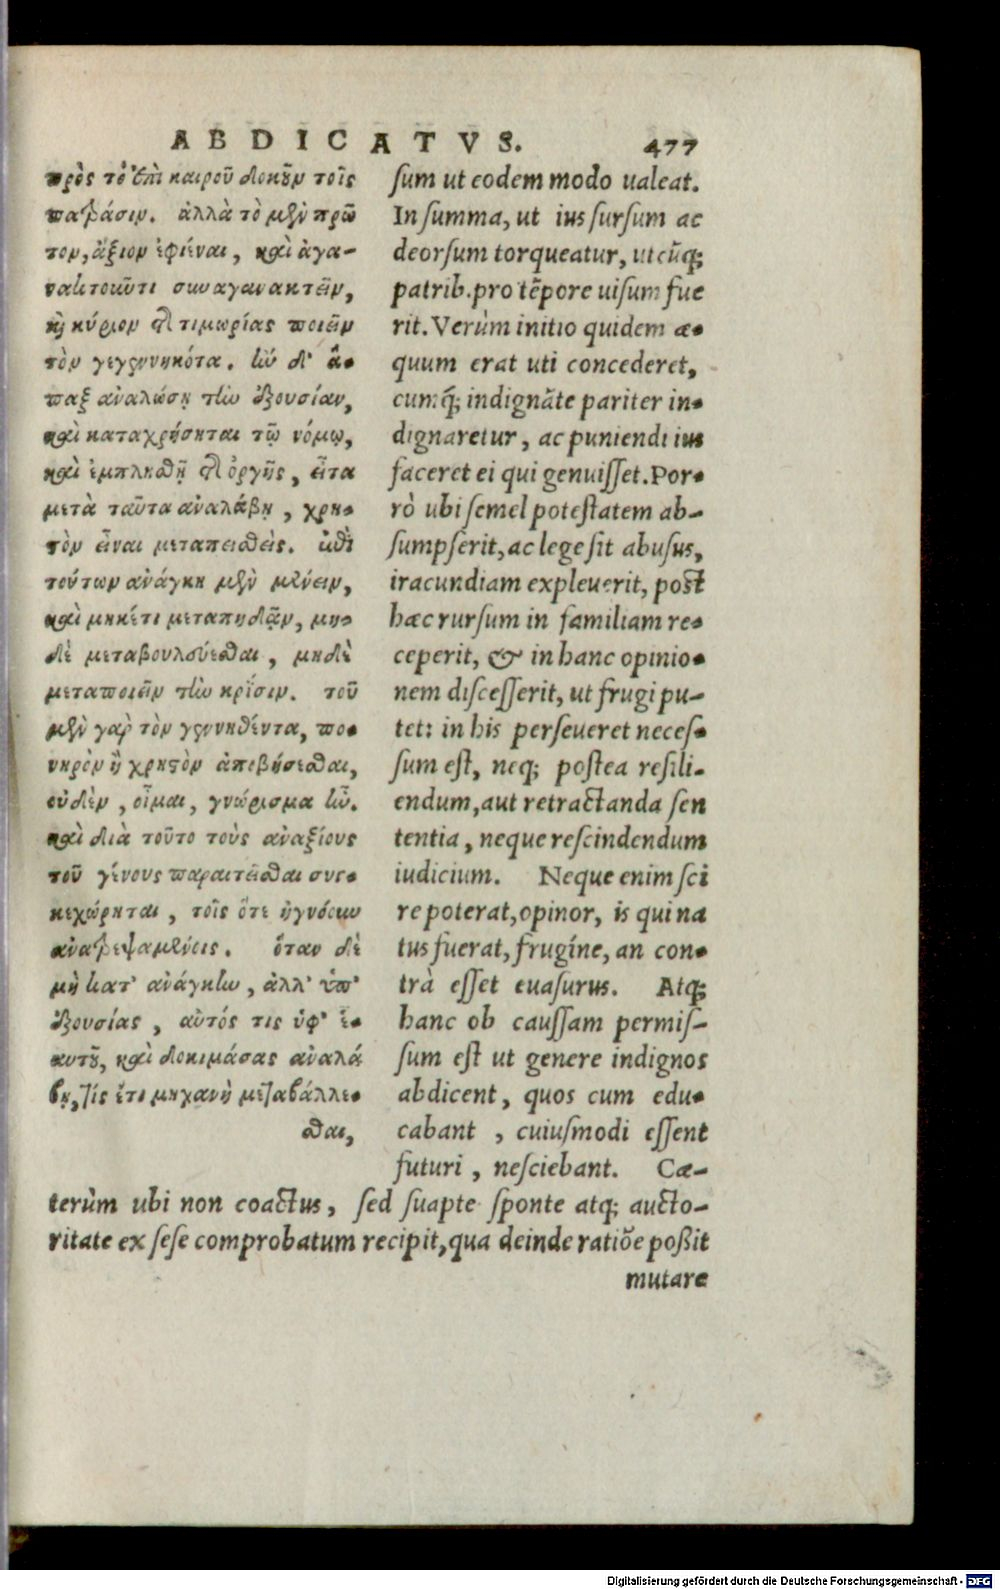 ABDICATVS. 477
πρὸς τὸ ἐπὶ καιροῦ δοκοῦν τοῖς
πατράσιν. ἀλλὰ τὸ μὲν πρῶ
τον, ἄξιον ἐφιέναι, καὶ ἀγα-
νακτοῦντι συναγανακτεῖν,
καὶ κύριον τῆς τιμωρίας ποιεῖν
τὸν γεγεννηκότα. ἢν δ' ἅ-
παξ ἀναλώσῃ τὴν ἐξουσίαν,
καὶ καταχρήσηται τῷ νόμῳ,
καὶ ἐμπλησθῇ τῆς ὀργῆς, εἶτα
μετὰ ταῦτα ἀναλάβῃ, χρη-
τὸν εἶναι μεταπεισθείς. ἐπὶ
τούτων ἀνάγκη μὲν μένειν,
καὶ μηκέτι μεταπηδᾷν, μη-
δὲ μεταβουλεύεσθαι, μηδὲ
μεταποιεῖν τὴν κρίσιν. τοῦ
μὲν γὰρ τὸν γεννηθέντα, πο-
νηρὸν ἢ χρηστὸν ἀποβήσεσθαι,
οὐδὲν, οἶμαι, γνώρισμα ἦν.
καὶ διὰ τοῦτο τοὺς ἀναξίους
τοῦ γένους παραιτεῖσθαι συγ-
κεχώρηται, τοῖς ὅτε ἠγνόουν
ἀναθρεψαμένοις. ὅταν δὲ
μὴ κατ' ἀνάγκην, ἀλλ' ὑπ'
ἐξουσίας, αὐτός τις ὑφ' ἑ-
αυτοῦ, καὶ δοκιμάσας ἀναλά
βῃ, τίς ἔτι μηχανὴ μεταβάλλε-
σθαι,
sum ut eodem modo ualeat.
In summa, ut ius sursum ac
deorsum torqueatur, utcũq;
patrib. pro tẽpore uisum fue
rit. Verùm initio quidem æ-
quum erat uti concederet,
cumq́; indignãte pariter in-
dignaretur, ac puniendi ius
faceret ei qui genuisset. Por-
rò ubi semel potestatem ab-
sumpserit, ac lege sit abusus,
iracundiam expleuerit, post
hæc rursum in familiam re-
ceperit, & in hanc opinio-
nem discesserit, ut frugi pu-
tet: in his perseueret neces-
sum est, neq; postea resili-
endum, aut retractanda sen
tentia, neque rescindendum
iudicium. Neque enim sci
re poterat, opinor, is qui na
tus fuerat, frugíne, an con-
trà esset euasurus. Atq;
hanc ob caussam permis-
sum est ut genere indignos
abdicent, quos cum edu-
cabant, cuiusmodi essent
futuri, nesciebant. Cæ-
terùm ubi non coactus, sed suapte sponte atq; aucto-
ritate ex sese comprobatum recipit, qua deinde ratiõe poßit
mutare
Digitalisierung gefördert durch die Deutsche Forschungsgemeinschaft - DFG